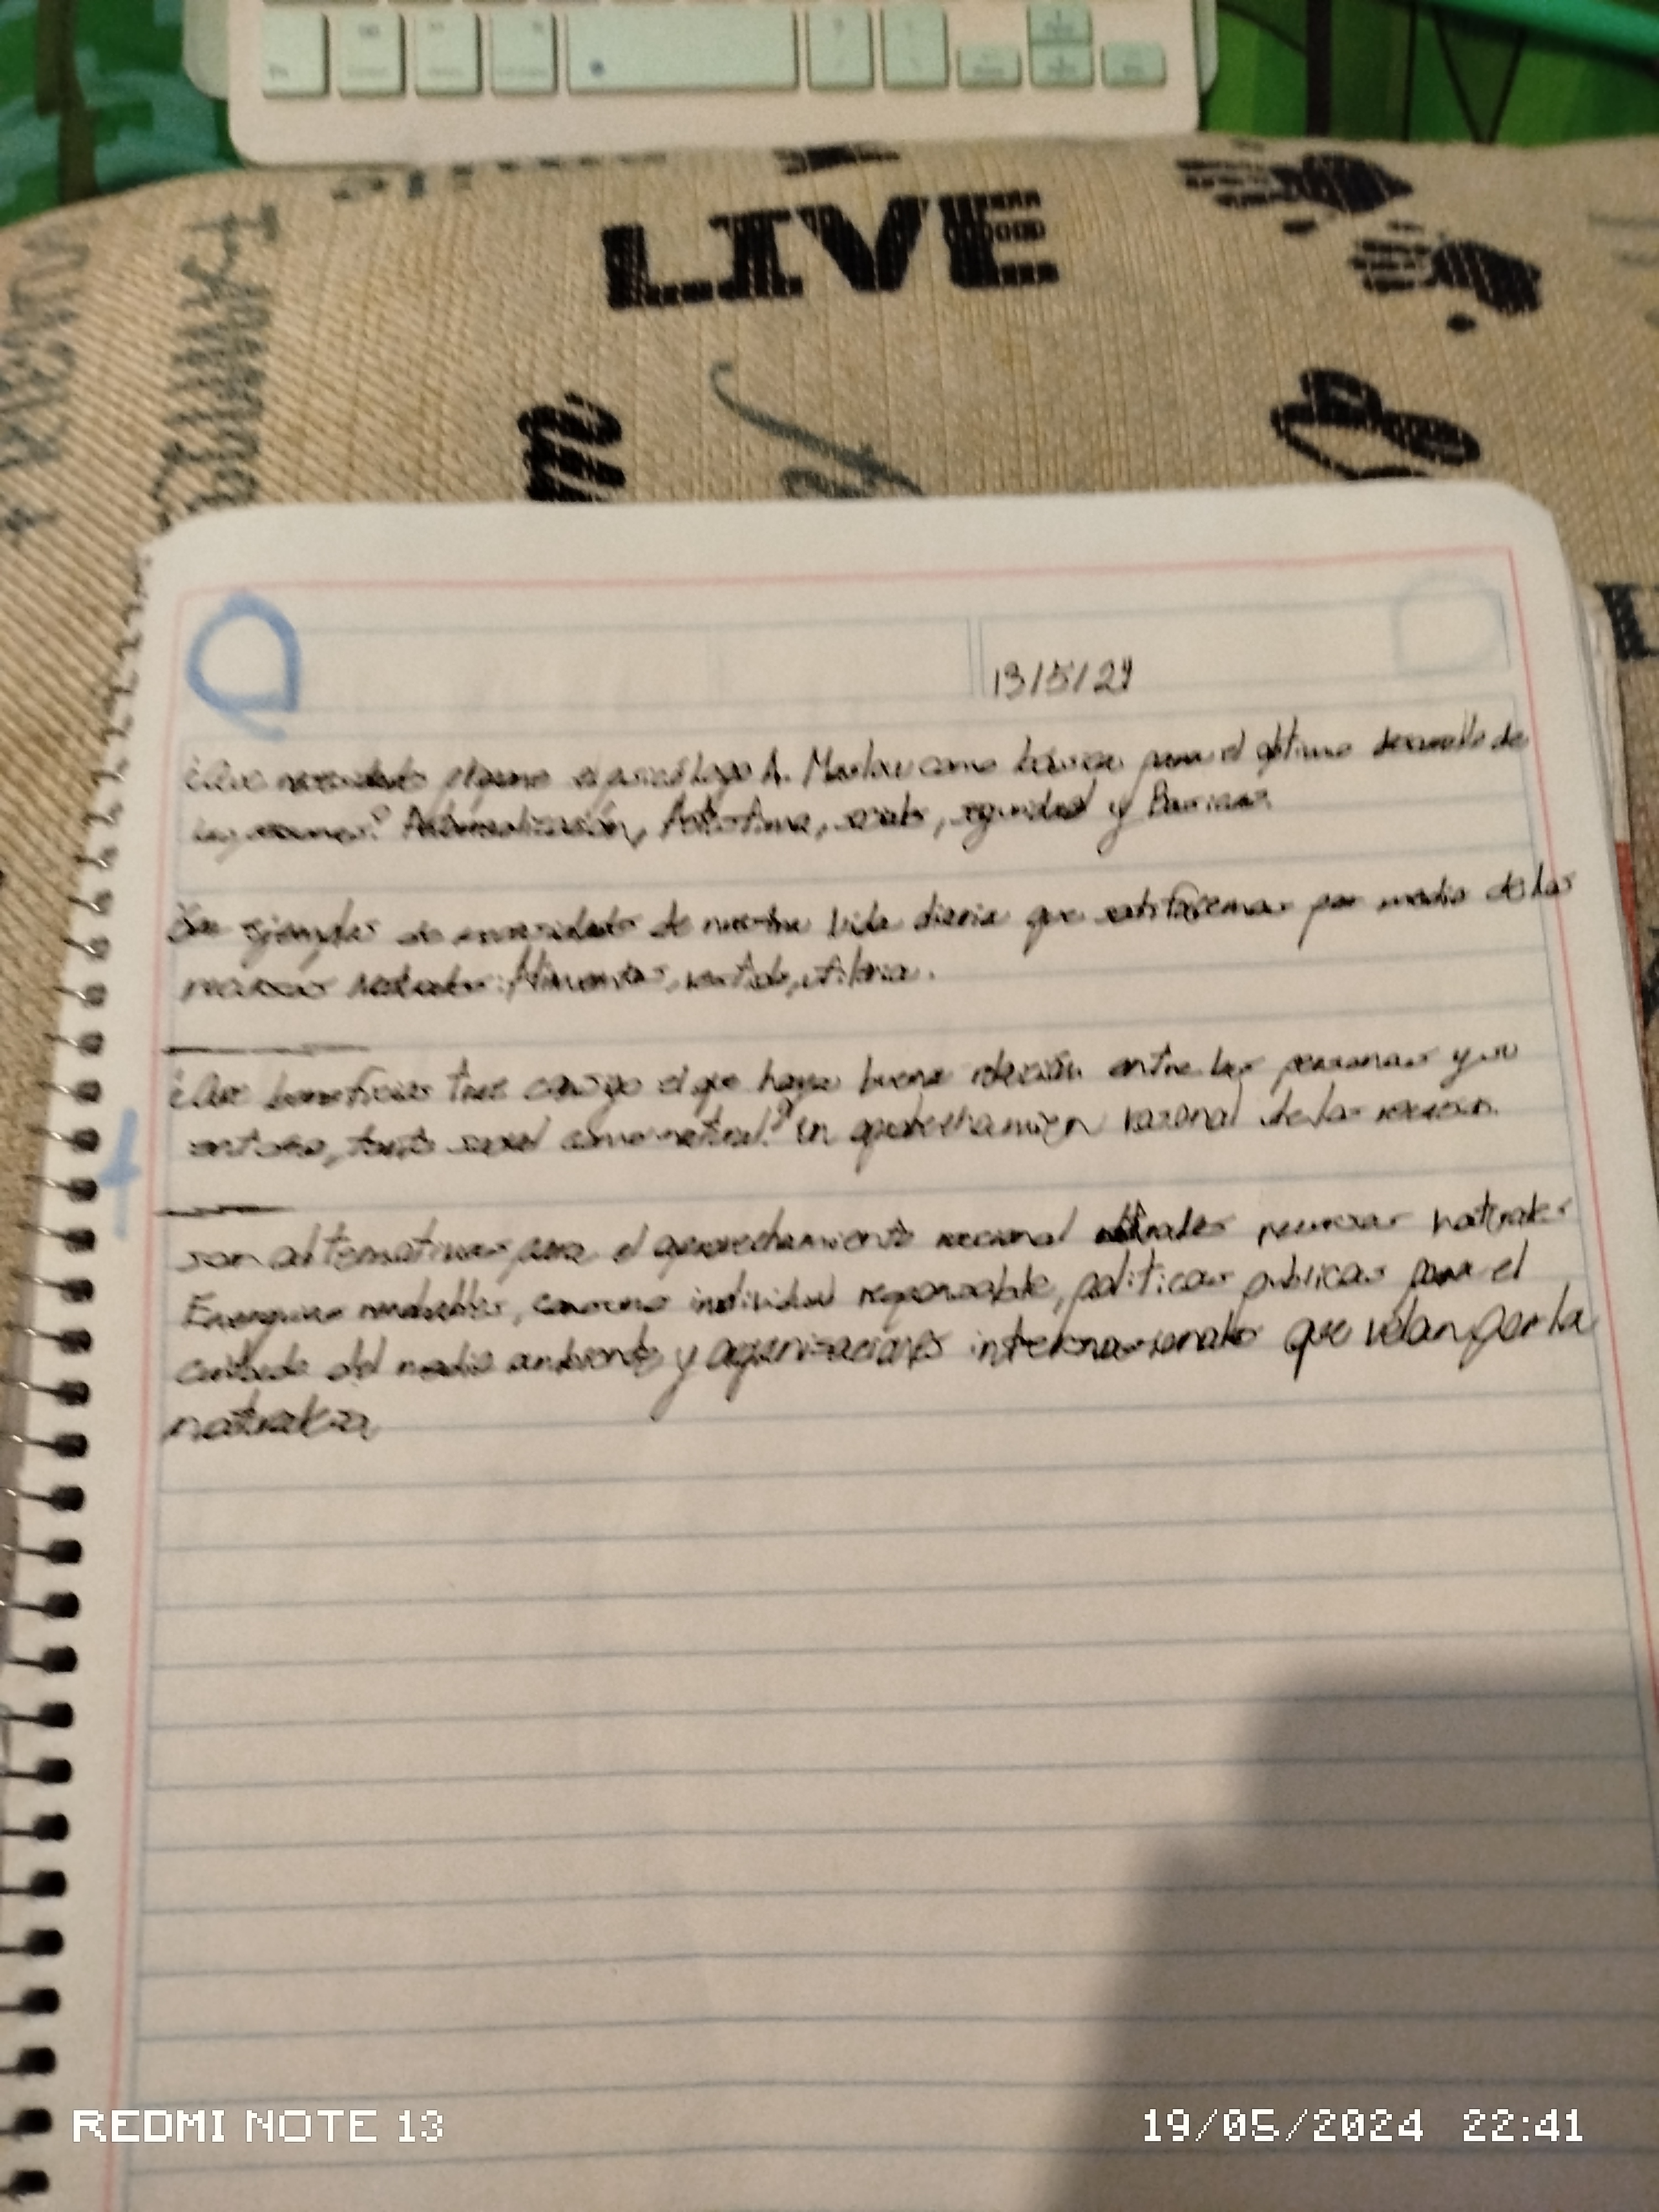 LIVE
13/5/24
¿Que necesidades propone el psicólogo A. Maslow como básicas para el óptimo desarrollo de
las personas? Autorrealización, Autoestima, sociales, seguridad y Basicas.
Son ejemplos de necesidades de nuestra vida diaria que satisfacemos por medio de los
recursos naturales: Alimentos, vestido, utileria.
¿Que beneficios trae consigo el que haya buena relación entre las personas y su
entorno, tanto social como natural? Un aprobechamien razonal de los recursos.
son alternativas para el aprovechamiento racional recursos naturales
Energias renobables, consumo individual responsable, politicas publicas para el
cuidado del medio ambiente y organizaciones internacionales que velan por la
naturaleza
REDMI NOTE 13
19/05/2024 22:41